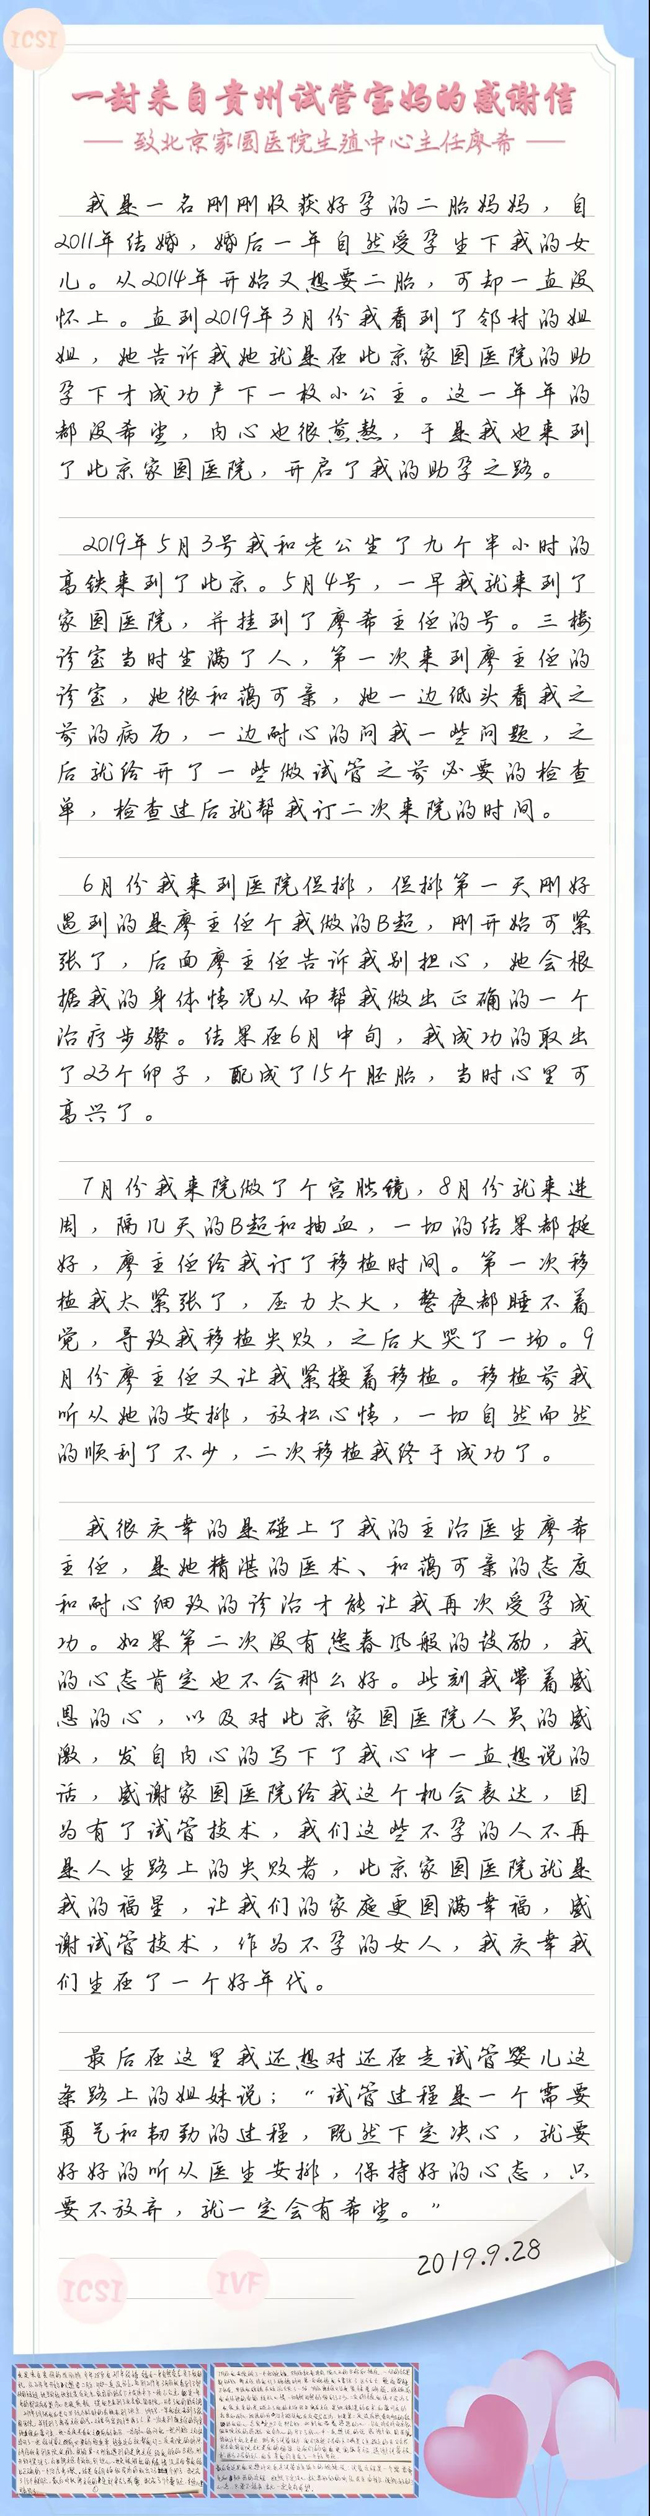 ICSI
一封来自贵州试管宝妈的感谢信
致北京家圆医院生殖中心主任廖希
我是一名刚刚收获好孕的二胎妈妈，自
2011年结婚，婚后一年自然受孕生下我的女
儿。从2014年开始又想要二胎，可却一直没
怀上。直到2019年3月份我看到了邻村的姐
姐，她告诉我她就是在北京家圆医院的助
孕下才成功产下一枚小公主。这一年年的
都没希望，内心也很煎熬，于是我也来到
了北京家圆医院，开启了我的助孕之路。
2019年5月3号我和老公坐了九个半小时的
高铁来到了北京。5月4号，一早我就来到了
家圆医院，并挂到了廖希主任的号。三楼
诊室当时坐满了人，第一次来到廖主任的
诊室，她很和蔼可亲，她一边低头看我之
前的病历，一边耐心的问我一些问题，之
后就给开了一些做试管之前必要的检查
单，检查过后就帮我订二次来院的时间。
6月份我来到医院促排，促排第一天刚好
遇到的是廖主任个我做的B超，刚开始可紧
张了，后面廖主任告诉我别担心，她会根
据我的身体情况从而帮我做出正确的一个
治疗步骤。结果在6月中旬，我成功的取出
了23个卵子，配成了15个胚胎，当时心里可
高兴了。
7月份我来院做了个宫腔镜，8月份就来进
周，隔几天的B超和抽血，一切的结果都挺
好，廖主任给我订了移植时间。第一次移
植我太紧张了，压力太大，整夜都睡不着
觉，导致我移植失败，之后大哭了一场。9
月份廖主任又让我紧接着移植。移植前我
听从她的安排，放松心情，一切自然而然
的顺利了不少，二次移植我终于成功了。
我很庆幸的是碰上了我的主治医生廖希
主任，是她精湛的医术、和蔼可亲的态度
和耐心细致的诊治才能让我再次受孕成
功。如果第二次没有您春风般的鼓励，我
的心态肯定也不会那么好。此刻我带着感
恩的心，以及对北京家圆医院人员的感
激，发自内心的写下了我心中一直想说的
话，感谢家圆医院给我这个机会表达，因
为有了试管技术，我们这些不孕的人不再
是人生路上的失败者，北京家圆医院就是
我的福星，让我们的家庭更圆满幸福，感
谢试管技术，作为不孕的女人，我庆幸我
们生在了一个好年代。
最后在这里我还想对还在走试管婴儿这
条路上的姐妹说；“试管过程是一个需要
勇气和韧劲的过程，既然下定决心，就要
好好的听从医生安排，保持好的心态，只
要不放弃，就一定会有希望。”
2019.9.28
ICSI
IVF